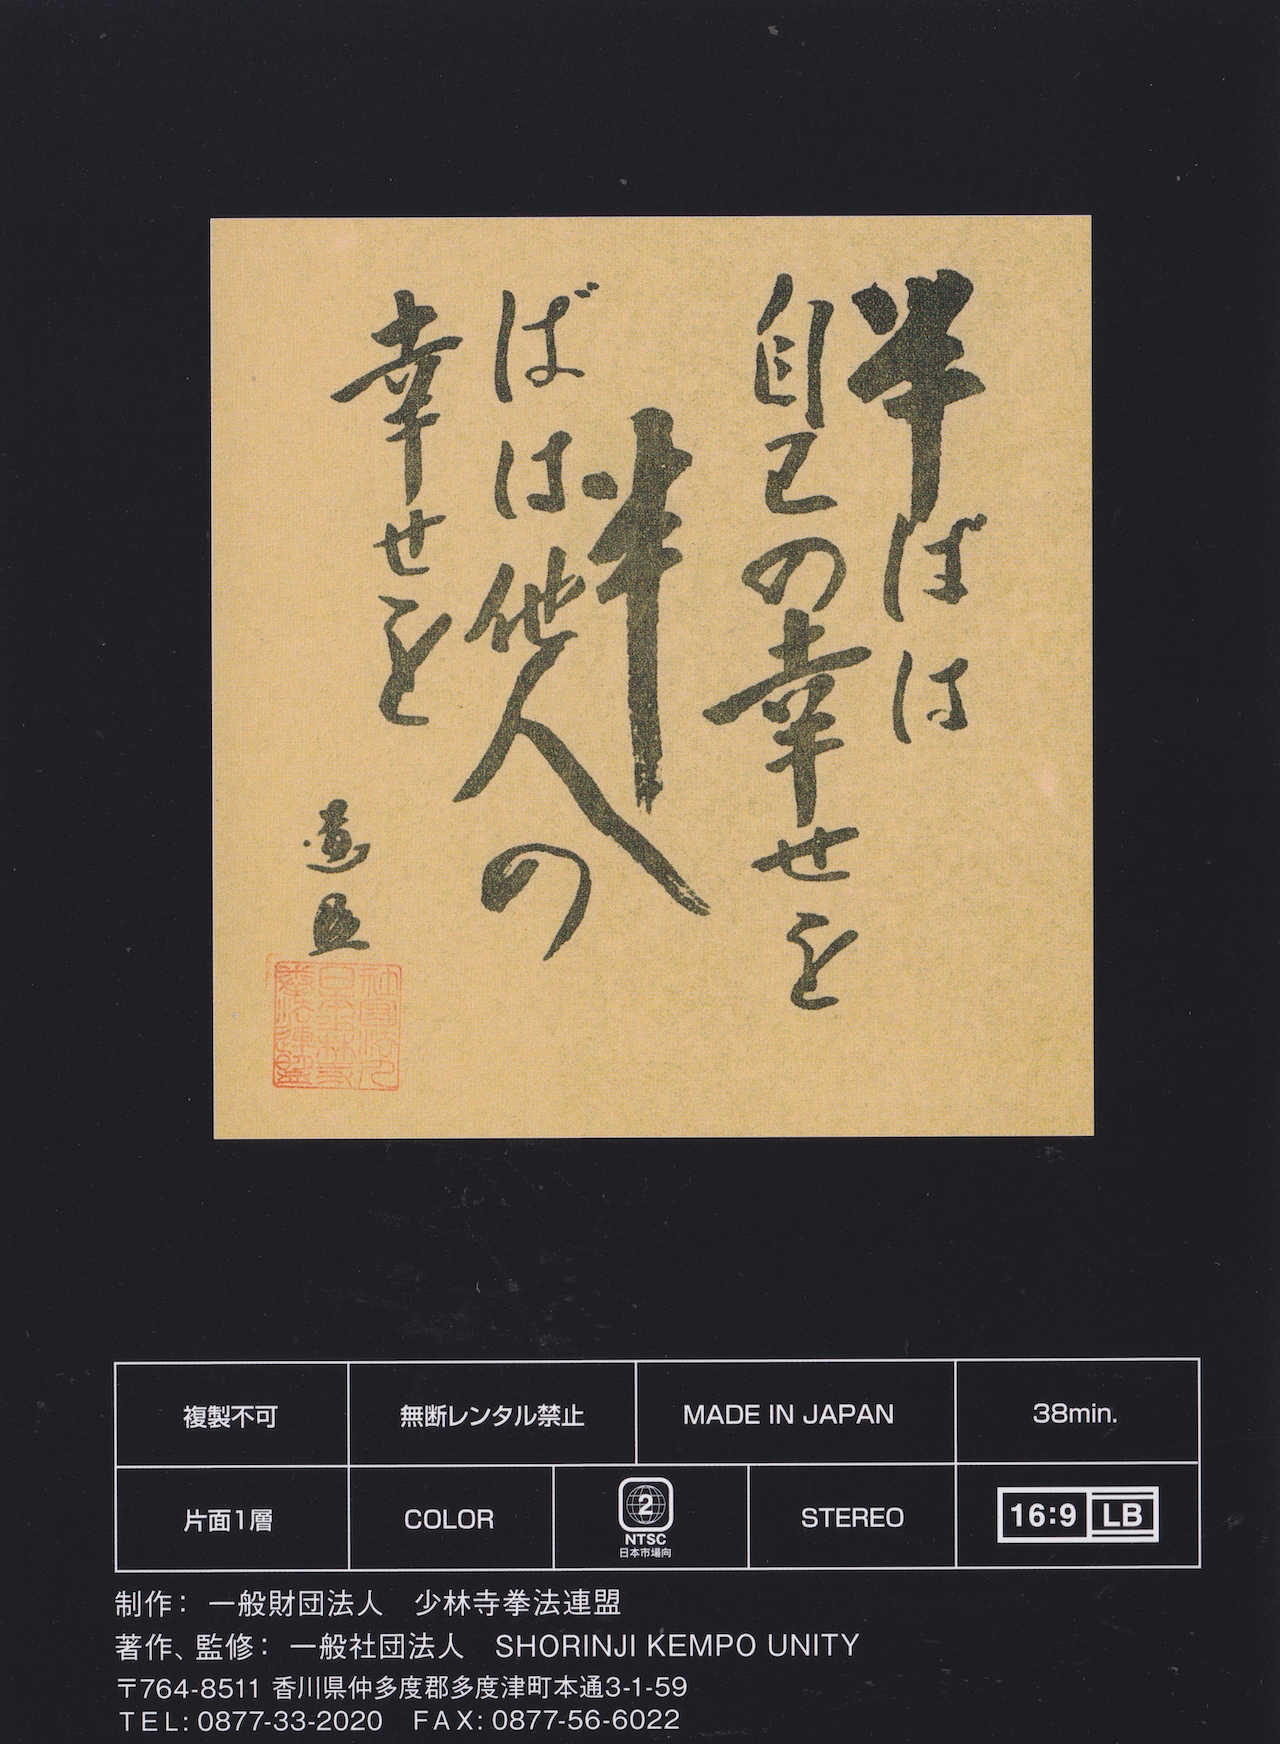 半ばは
自己の幸せを
半
ばは他人の
幸せを
道臣
複製不可
無断レンタル禁止
MADE IN JAPAN
38min.
片面1層
COLOR
2
NTSC
日本市場向
STEREO
16:9 LB
制作： 一般財団法人　少林寺拳法連盟
著作、監修： 一般社団法人　SHORINJI KEMPO UNITY
〒764-8511 香川県仲多度郡多度津町本通3-1-59
TEL: 0877-33-2020　FAX: 0877-56-6022